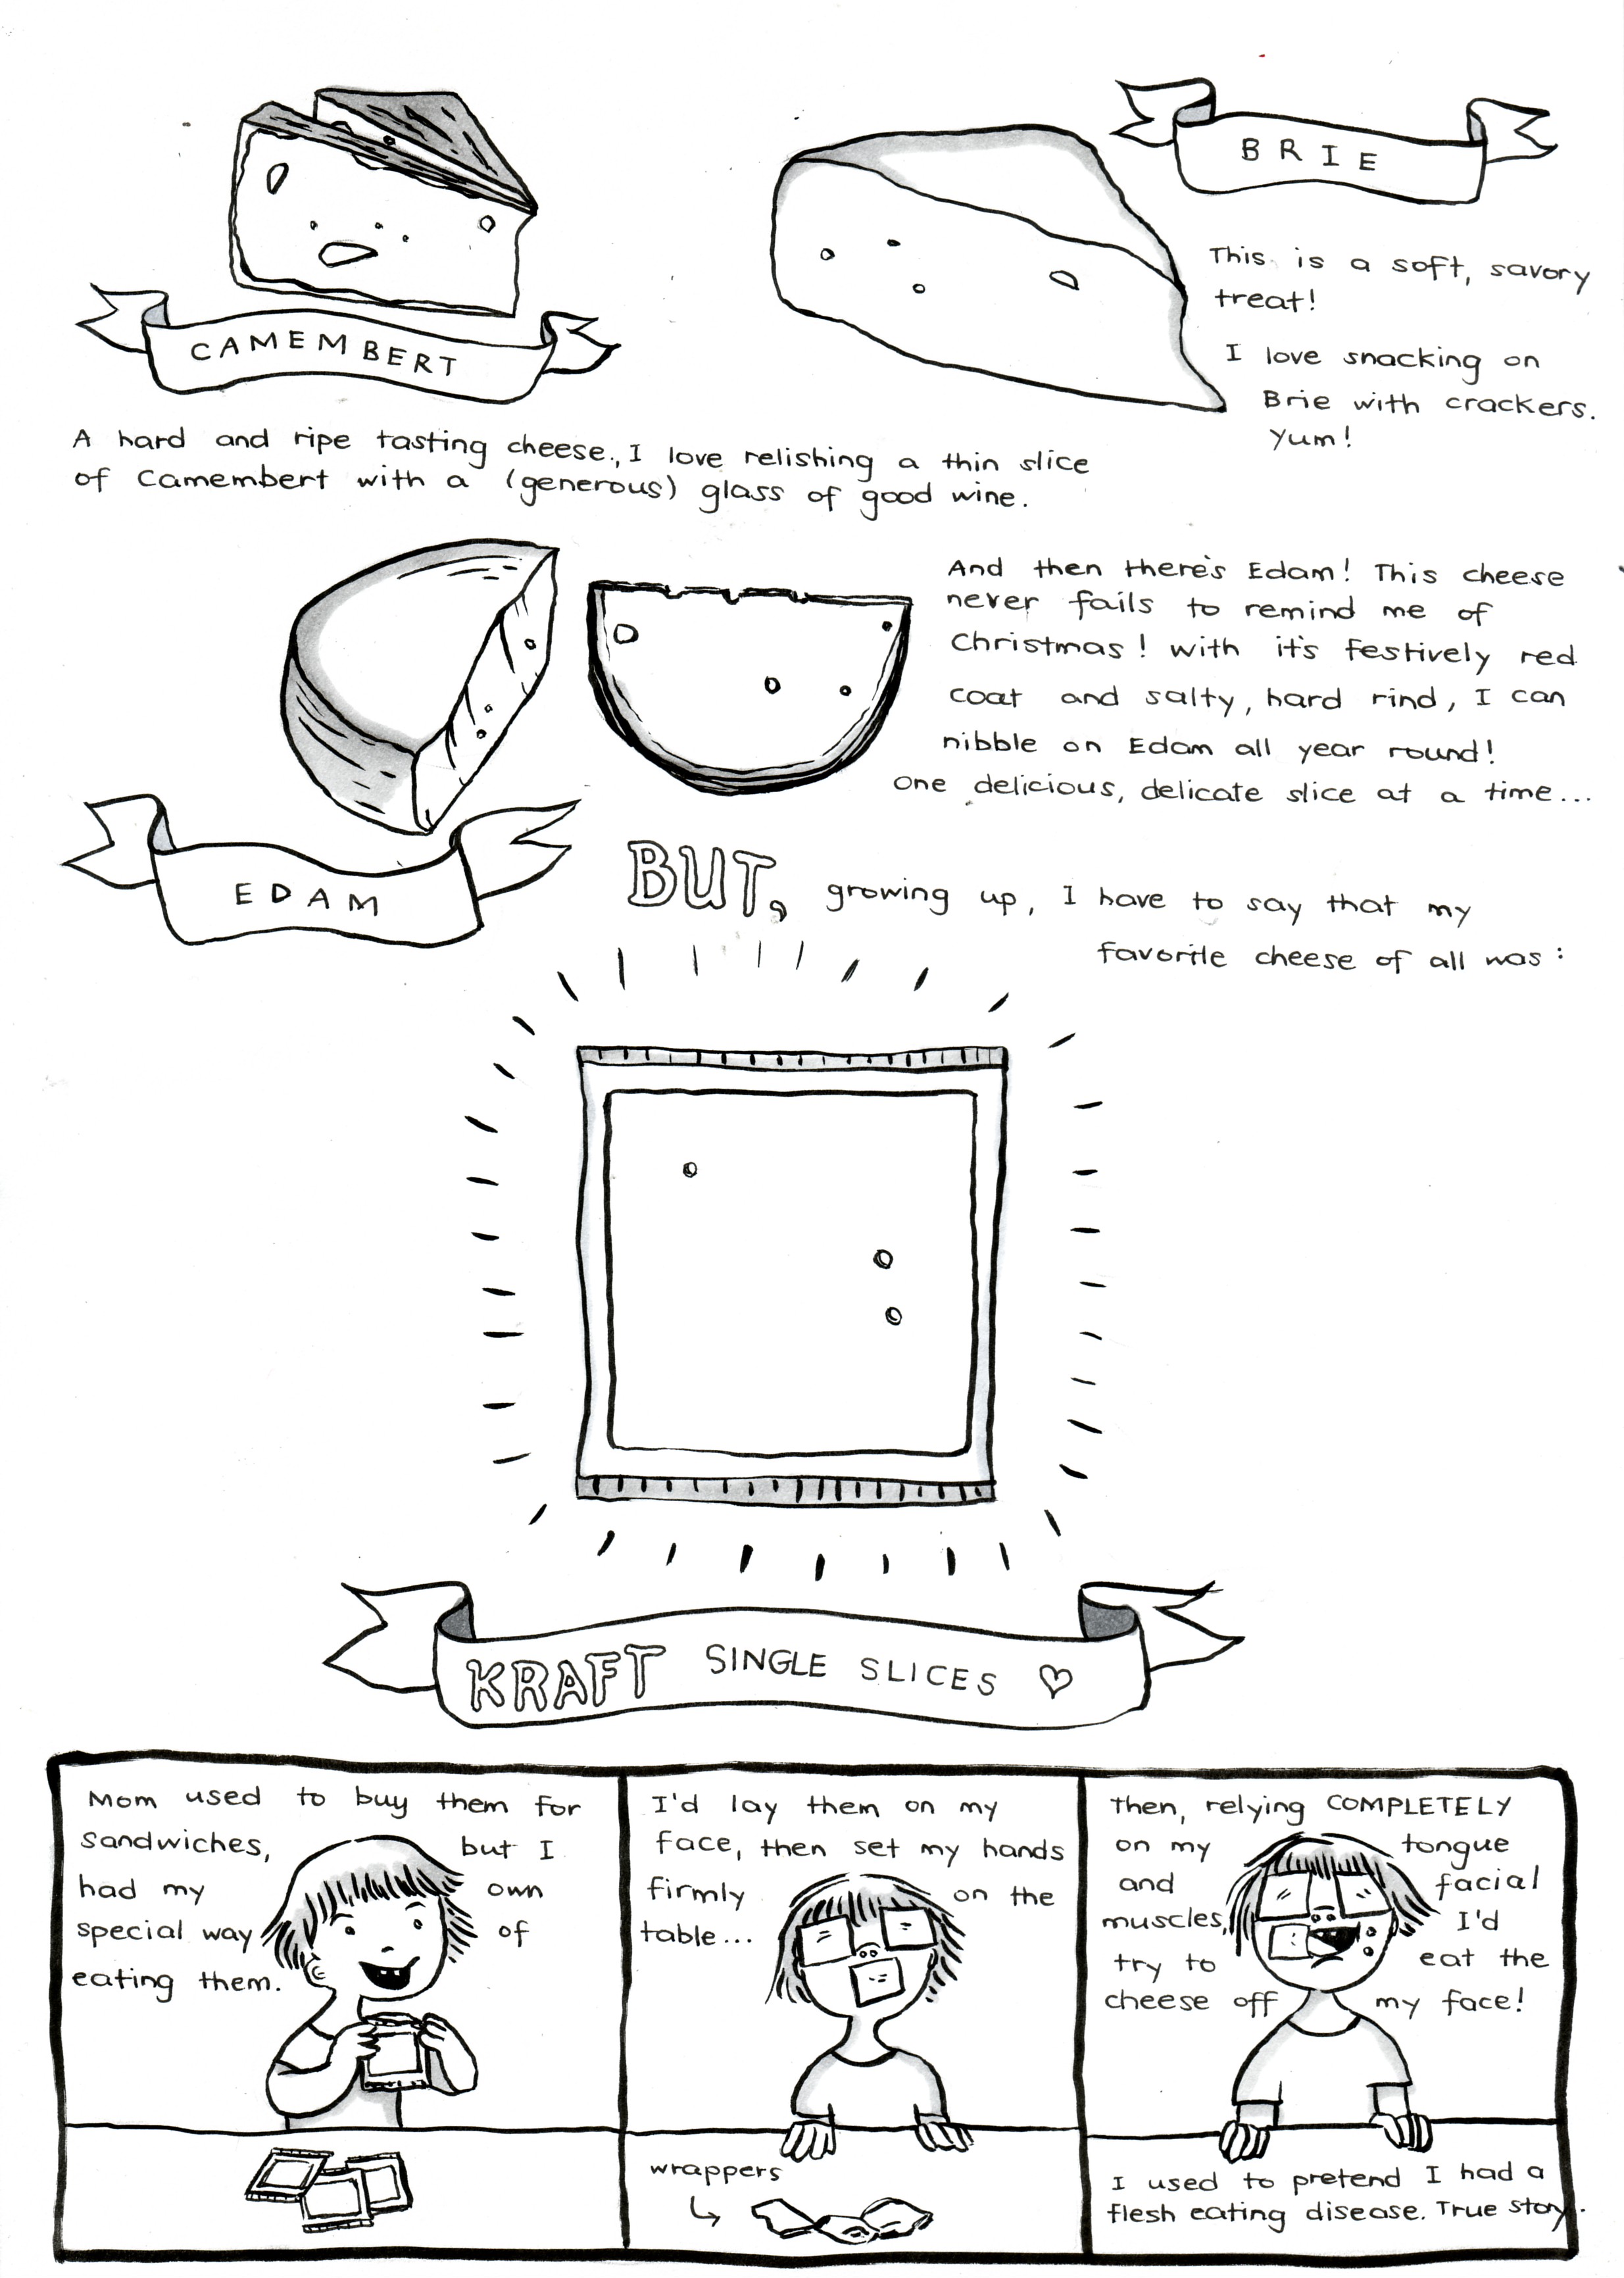 CAMEMBERT
A hard and ripe tasting cheese, I love relishing a thin slice
of Camembert with a (generous) glass of good wine.
BRIE
This is a soft, savory
treat!
I love snacking on
Brie with crackers.
Yum!
And then there's Edam! This cheese
never fails to remind me of
Christmas! with it's festively red
coat and salty, hard rind, I can
nibble on Edam all year round!
One delicious, delicate slice at a time...
EDAM
BUT, growing up, I have to say that my
favorite cheese of all was:
KRAFT SINGLE SLICES ♡
Mom used to buy them for
sandwiches, but I
had my own
special way of
eating them.
I'd lay them on my
face, then set my hands
firmly on the
table...
wrappers
Then, relying COMPLETELY
on my tongue
and facial
muscles, I'd
try to eat the
cheese off my face!
I used to pretend I had a
flesh eating disease. True story.